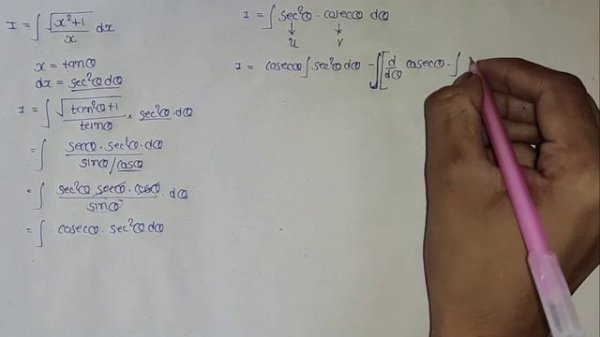 I = ∫ √(x²+1) / x dx
x = tanθ
dx = sec²θ dθ
I = ∫ √(tan²θ+1) / tanθ × sec²θ · dθ
= ∫ secθ · sec²θ · dθ / sinθ/cosθ
= ∫ sec²θ secθ · cosθ / sinθ dθ
= ∫ cosecθ · sec²θ dθ
I = ∫ sec²θ · cosecθ dθ
↓ ↓
u v
I = cosecθ ∫ sec²θ dθ - ∫ [ d/dθ cosecθ · ∫